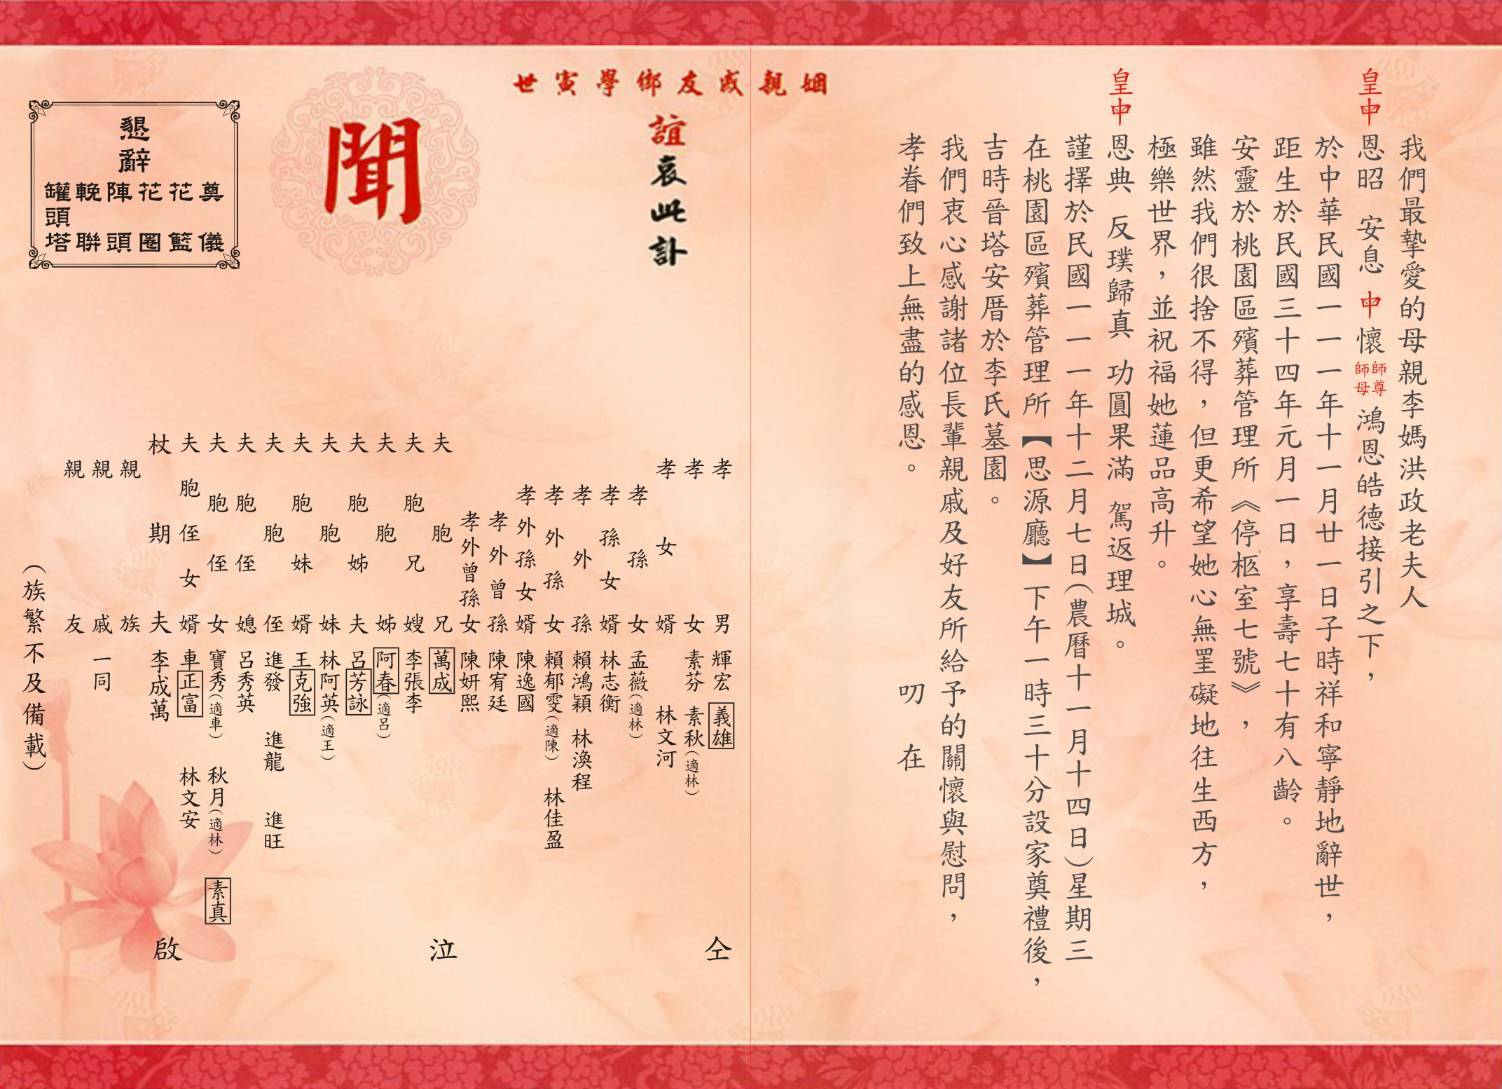 我們最摯愛的母親李媽洪政老夫人
皇中 恩昭 安息 中懷 師尊師母 鴻恩皓德接引之下，
於中華民國一一一年十一月廿一日子時祥和寧靜地辭世，
距生於民國三十四年元月一日，享壽七十有八齡。
安靈於桃園區殯葬管理所《停柩室七號》，
雖然我們很捨不得，但更希望她心無罣礙地往生西方，
極樂世界，並祝福她蓮品高升。
皇中 恩典 反璞歸真 功圓果滿 駕返理城。
謹擇於民國一一一年十二月七日(農曆十一月十四日)星期三
在桃園區殯葬管理所【思源廳】下午一時三十分設家奠禮後，
吉時晉塔安厝於李氏墓園。
我們衷心感謝諸位長輩親戚及好友所給予的關懷與慰問，
孝眷們致上無盡的感恩。
叨在
姻親戚友鄉學寅世
誼哀此訃
聞
懇辭
奠儀
花籃
花圈
陣頭
輓聯
罐頭塔
孝男 輝宏 義雄
孝女 素芬 素秋(適林)
孝女婿 林文河
孝孫女 孟薇(適林)
孝孫女婿 林志衡
孝外孫 賴鴻穎 林渙程
孝外孫女 賴郁雯(適陳) 林佳盈
孝外孫女婿 陳逸國
孝外曾孫 陳宥廷
孝外曾孫女 陳妍熙
夫胞兄 萬成
夫胞嫂 李張李
夫胞姊 阿春(適呂)
夫胞姊夫 呂芳詠
夫胞妹 林阿英(適王)
夫胞妹婿 王克強
夫胞侄 進發 進龍 進旺
夫胞侄媳 呂秀英
夫胞侄女 寶秀(適車) 秋月(適林) 素真
夫胞侄女婿 車正富 林文安
杖期夫 李成萬
親族
親戚 一同
親友
(族繁不及備載)
仝 泣 啟